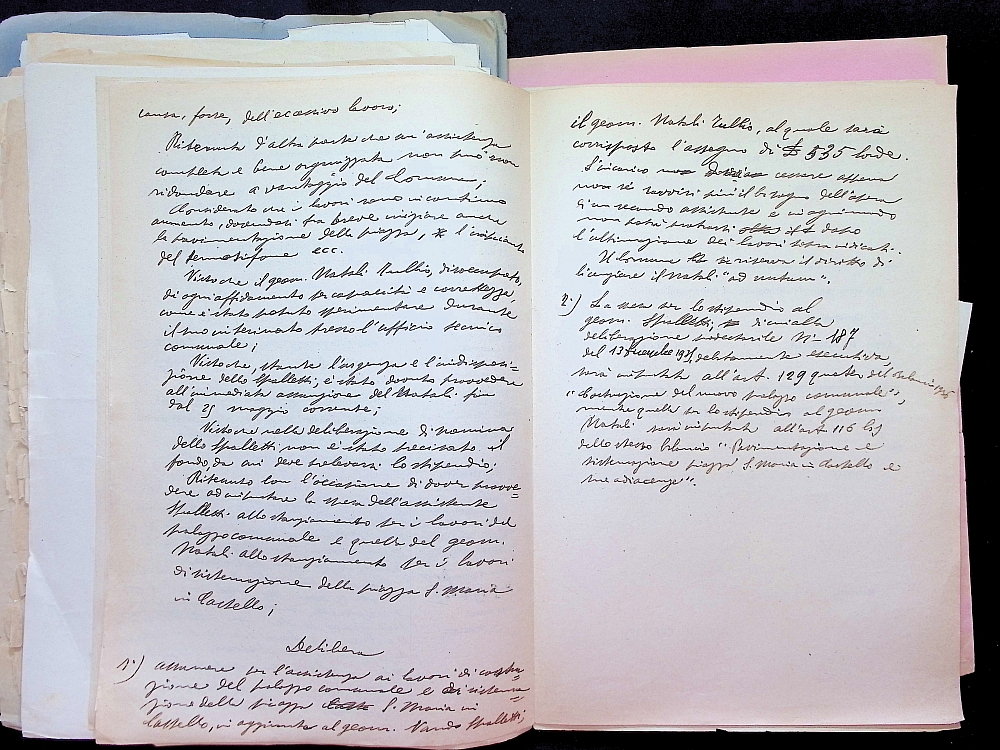 causa, forse, dell'eccessivo lavoro;
Ritenuto d'altra parte che un'assistenza
completa e bene organizzata non può non
ridondare a vantaggio del Comune;
Considerato che i lavori sono in continuo
aumento, dovendosi fra breve iniziare anche
la pavimentazione della piazza, l'impianto
del termosifone ecc.
Visto che il geom. Natali Tullio, disoccupato,
dà ogni affidamento per capacità e correttezza,
come è stato potuto sperimentare durante
il suo interinato presso l'ufficio tecnico
comunale;
Visto che, stante l'urgenza e l'indisposi=
zione dello Spalletti, è stato dovuto provvedere
all'immediata assunzione del Natali fin
dal 25 maggio corrente;
Visto che nella deliberazione di nomina
dello Spalletti non è stato precisato il
fondo da cui deve prelevarsi lo stipendio;
Ritenuto con l'occasione di dover provve=
dere ad imputare la spesa dell'assistente
Spalletti allo stanziamento per i lavori del
palazzo comunale e quella del geom.
Natali allo stanziamento per i lavori
di sistemazione della piazza S. Maria
in Castello;
Delibera
1°) assumere per l'assistenza ai lavori di costru=
zione del palazzo comunale e di sistema=
zione della piazza S. Maria in
Castello, in aggiunta al geom. Nando Spalletti,
il geom. Natali Tullio, al quale sarà
corrisposto l'assegno di £ 535 lorde.
L'incarico dovrà cessare appena
non si ravvisi più il bisogno dell'opera
di un secondo assistente e in ogni modo
non potrà protrarsi dopo
l'ultimazione dei lavori sopra indicati.
Il Comune si riserva il diritto di
licenziare il Natali "ad nutum".
2°) La spesa per lo stipendio al
geom. Spalletti, di cui alla
deliberazione podestarile N° 187
del 13 dicembre 1935, debitamente esecutiva
sarà imputata all'art. 129 quater del Bilancio 1936
"Costruzione del nuovo palazzo comunale",
mentre quella per lo stipendio al geom
Natali sarà imputata all'art 116 bis
dello stesso bilancio "Pavimentazione e
sistemazione piazza S. Maria in Castello e
sue adiacenze".